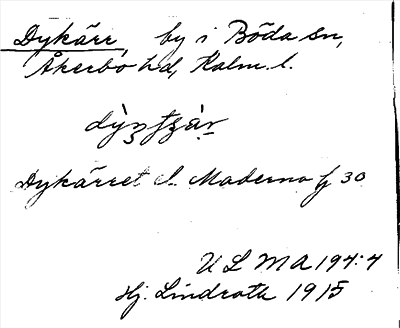 Dykärr, by i Böda sn,
Åkerbo hd, Kalm. l.
Dykärret l. Maderna fz 30
ULMA 194:4
Hj. Lindroth 1915